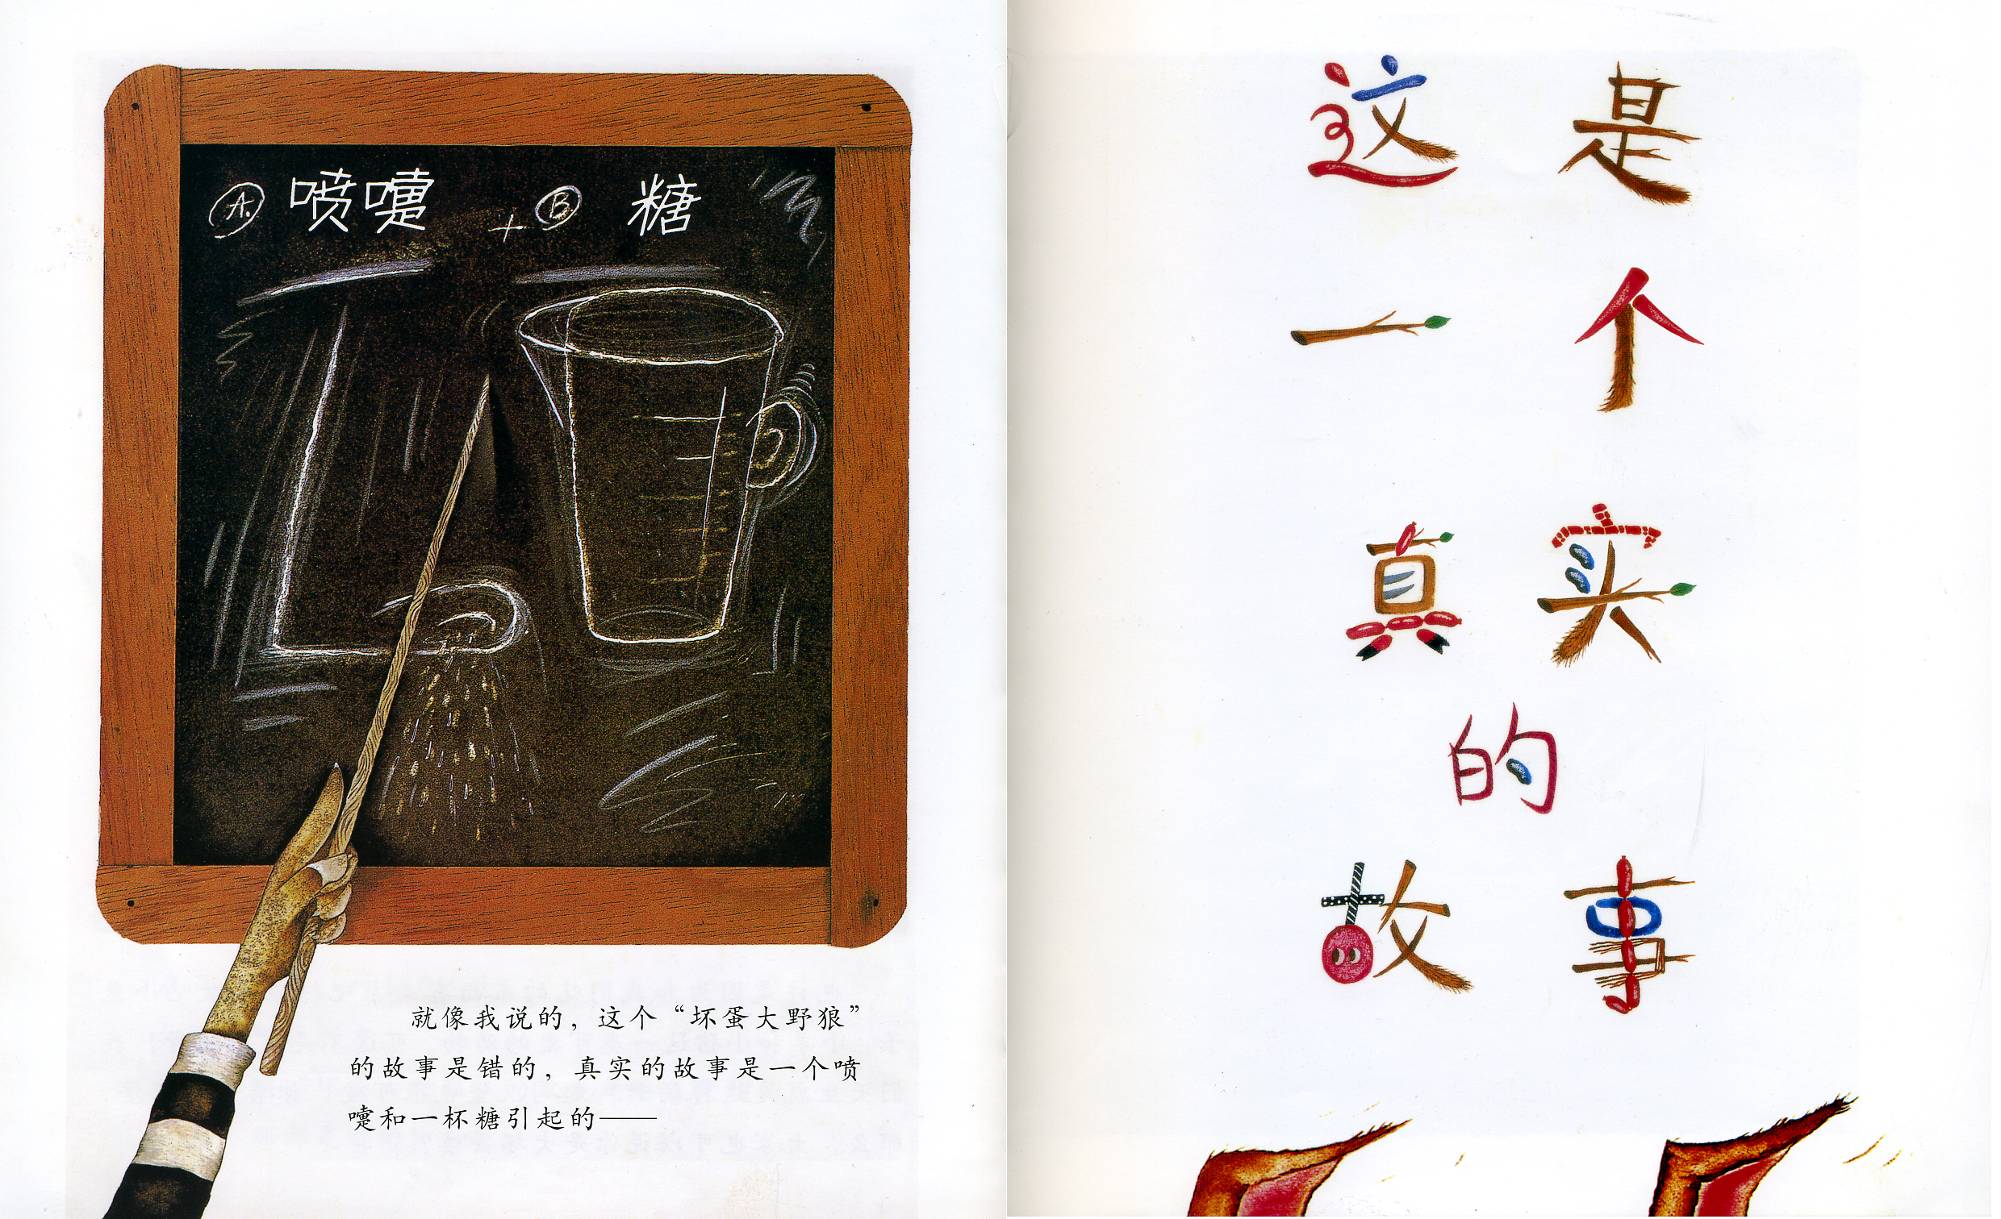 A. 喷嚏 + B 糖
就像我说的，这个“坏蛋大野狼”
的故事是错的，真实的故事是一个喷
嚏和一杯糖引起的——
这是
一个
真实
的
故事